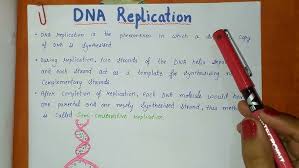 DNA Replication
• DNA Replication is the phenomenon in which a copy
of DNA is synthesised
• During Replication, two strands of the DNA helix
and each strand act as a template for synthesising new
Complementary strands.
• After completion of Replication, Each DNA molecule would have
one parental and one newly synthesised strand, this
is called Semi-conservative Replication.